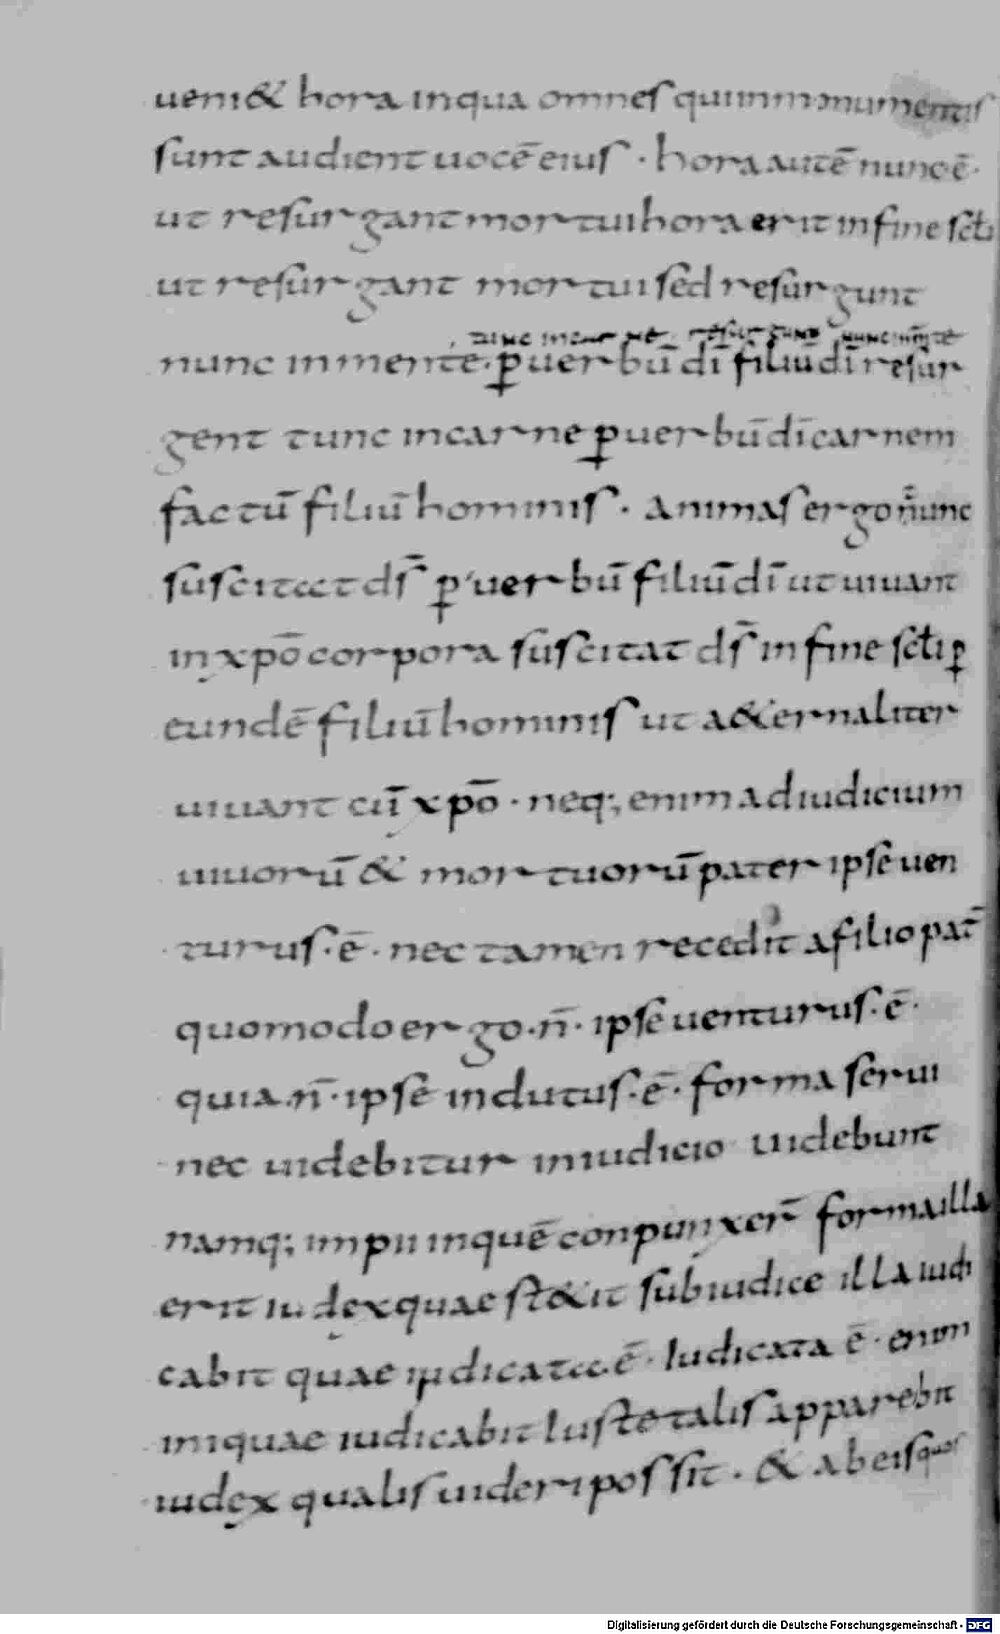 ueni& hora inqua omnes quiinmonumentis
sunt audient uocē eius · hora autē nunc ē ·
ut resurgant mortui hora erit in fine scłi
ut resurgant mortui sed resurgunt
tunc incarne resurgunt nunc inm̄te
nunc inmente · ꝑ uerbū dī filiū dī resur
gent tunc incarne ꝑ uerbū dī carnem
factū filiū hominis · animas ergo nunc
suscitat ds̄ ꝑ uerbū filiū dī ut uiuant
in xpō corpora suscitat ds̄ in fine scłi ꝑ
eundē filiū hominis ut a&ernaliter
uiuant cū xpō · neq; enim adiudicium
uiuorū & mortuorū pater ipse uen
turus · ē · nec tamen recedit afilio pat̄
quomodo ergo · n̄ · ipse uenturus · ē ·
quia · n̄ · ipse indutus · ē · forma serui
nec uidebitur iniudicio uidebunt
namq; impii inquē conpunxer̄ forma illa
erit iudex quae st&it sub iudice illa iudi
cabit quae iudicata ē · Iudicata ē · enim
iniquae iudicabit Iuste talis apparebit
iudex qualis uideri possit · & ab eis quos